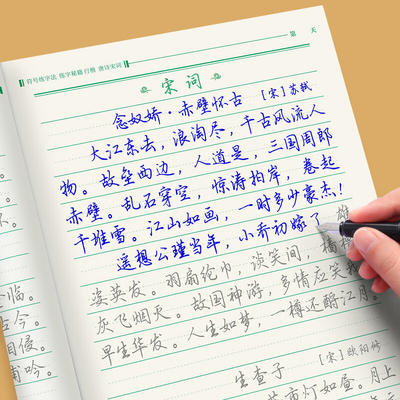 符号练字法 练字秘籍 行楷 唐诗宋词
第 天
宋词
念奴娇·赤壁怀古 [宋]苏轼
大江东去，浪淘尽，千古风流人
物。故垒西边，人道是，三国周郎
赤壁。乱石穿空，惊涛拍岸，卷起
千堆雪。江山如画，一时多少豪杰！
遥想公瑾当年，小乔初嫁了，雄
姿英发。羽扇纶巾，谈笑间，樯
灰飞烟灭。故国神游，多情应笑我
早生华发。人生如梦，一樽还酹江月。
生查子 [宋]欧阳修
市灯如昼。月上
临。
古今。
相侵。
啸吟。